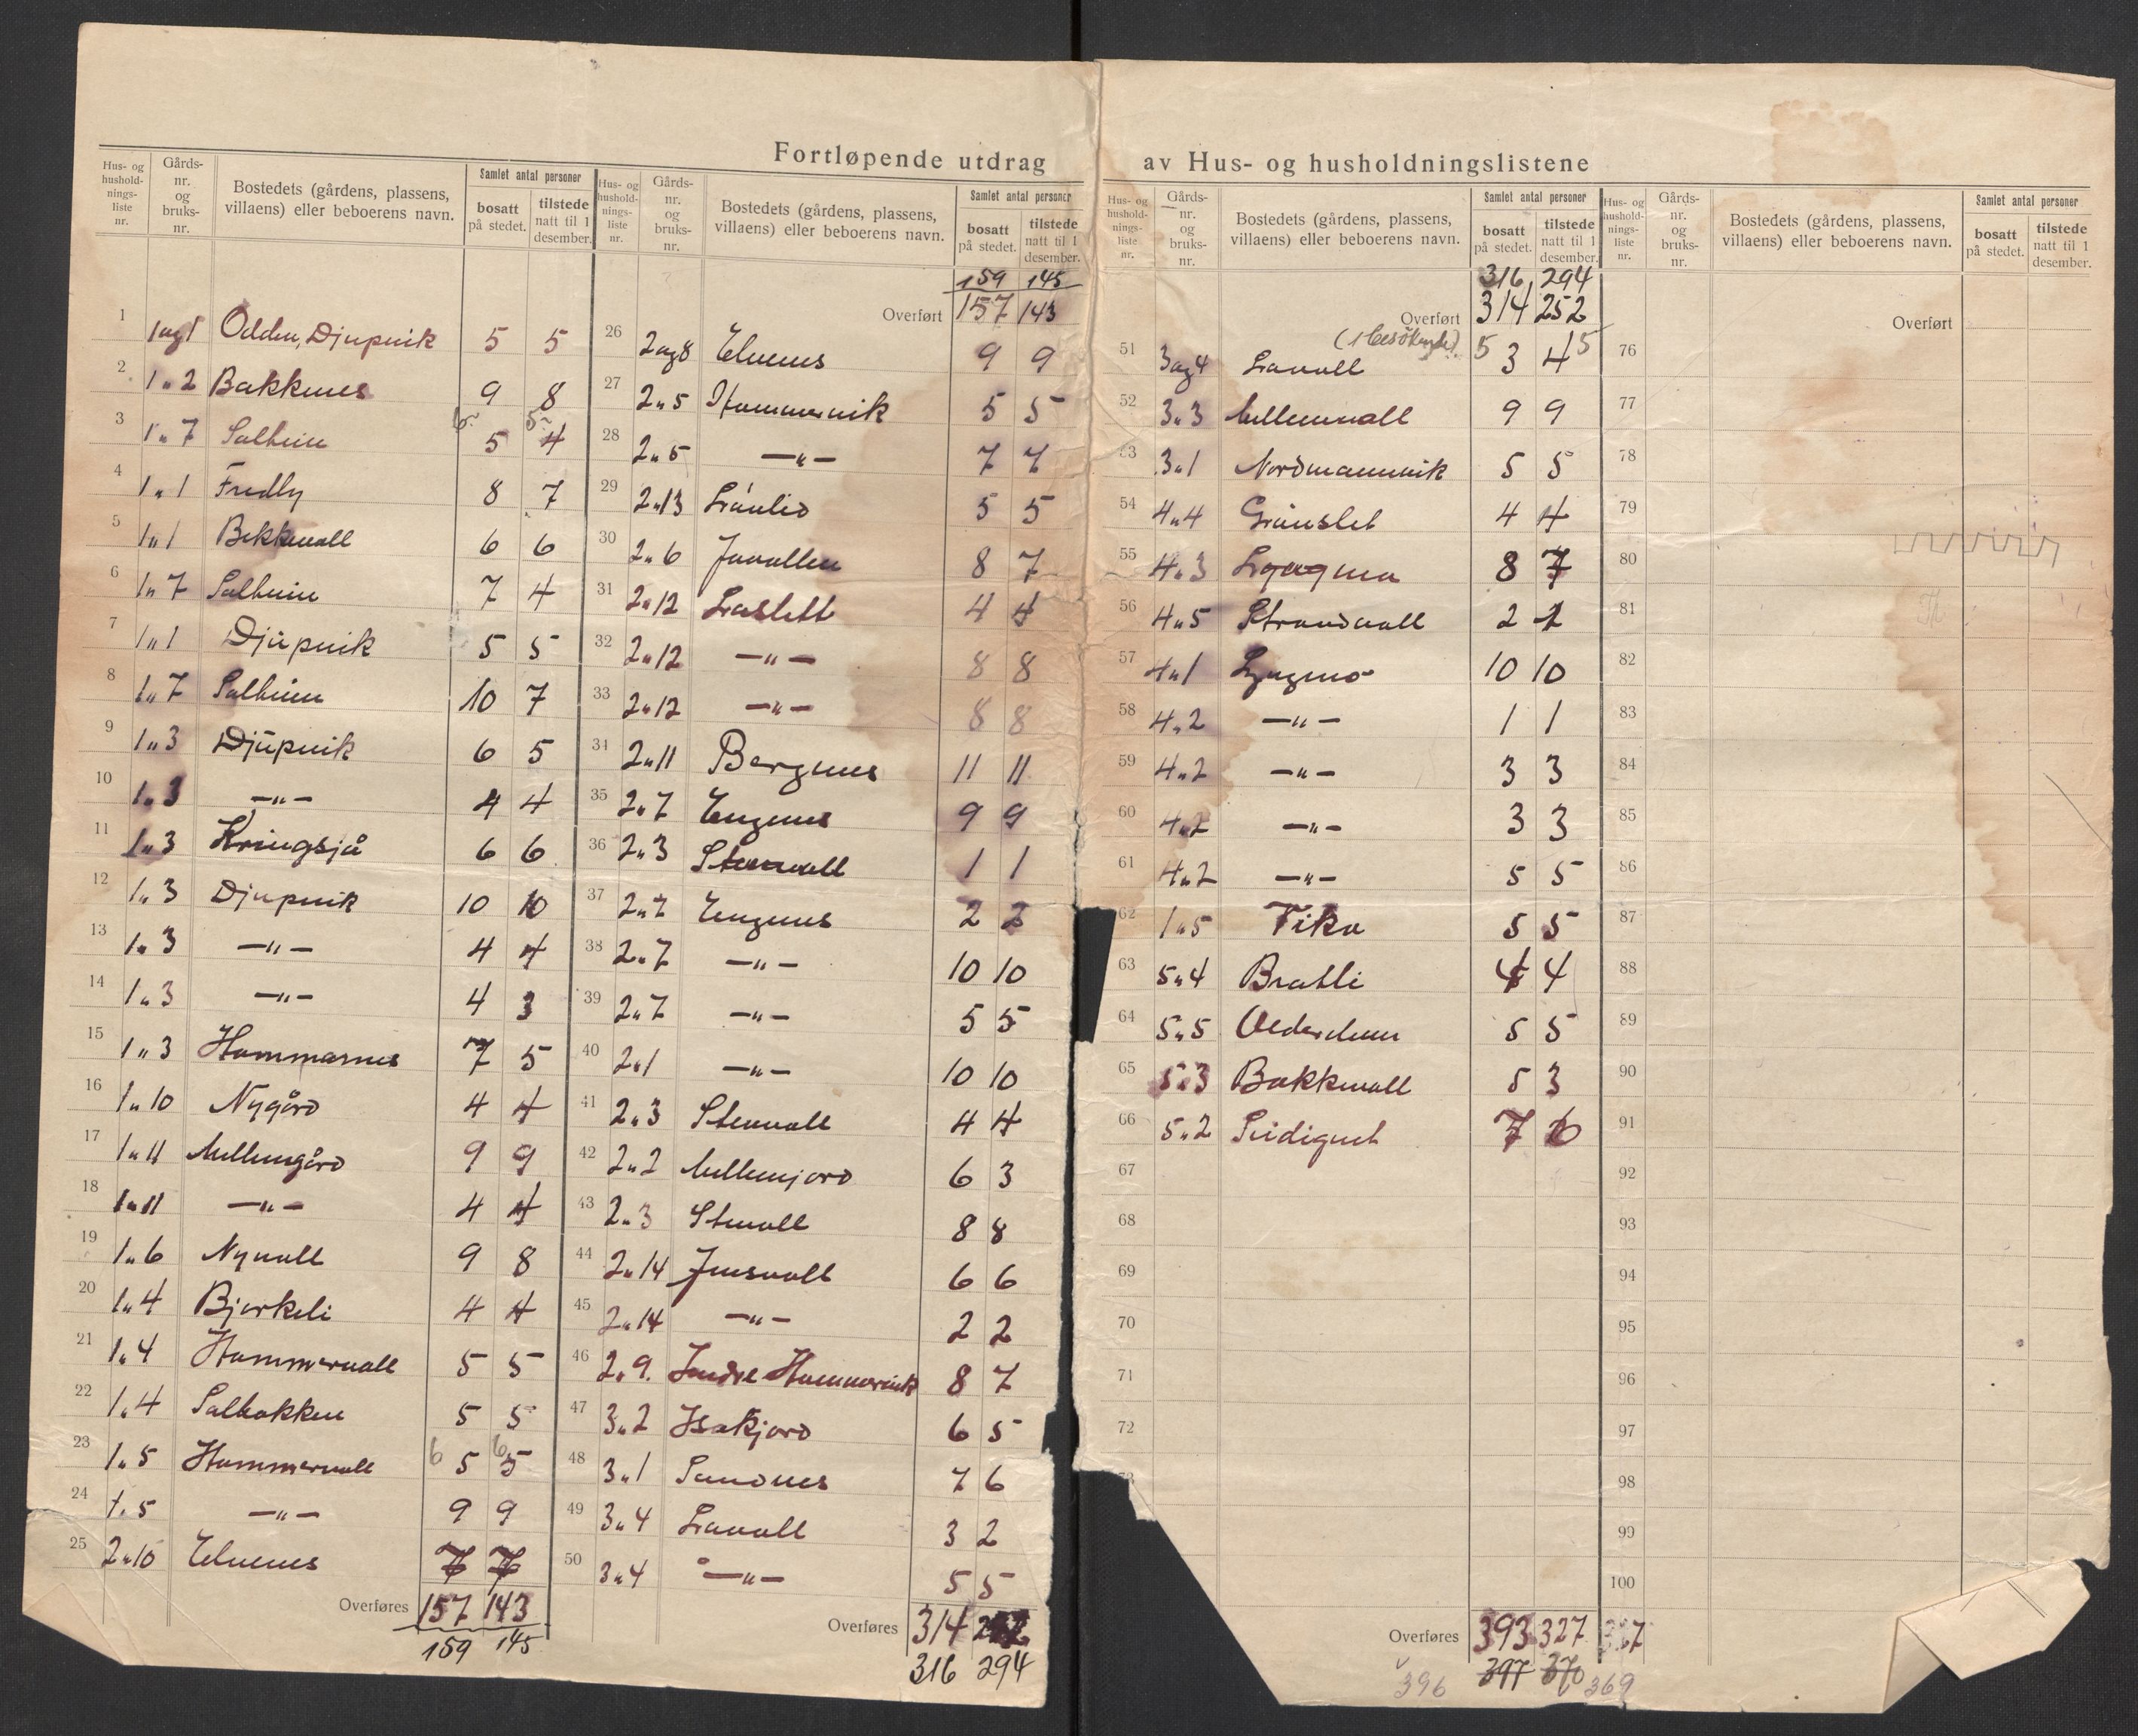 Fortløpende utdrag av Hus- og husholdningslistene
Hus- og hushold-nings-liste nr. Gårds-nr. og bruks-nr. Bostedets (gårdens, plassens, villaens) eller beboerens navn. Samlet antal personer bosatt på stedet. tilstede natt til 1 desember.
1 1 ag 5 Odden, Djupvik 5 5
2 1 „ 2 Bakkenes 9 8
3 1 „ 7 Solheim 6 5 5 4
4 1 „ 1 Fredly 8 7
5 1 „ 1 Bekkevoll 6 6
6 1 „ 7 Solheim 7 4
7 1 „ 1 Djupvik 5 5
8 1 „ 7 Solheim 10 7
9 1 „ 3 Djupvik 6 5
10 1 „ 3 —„— 4 4
11 1 „ 3 Kringsjå 6 6
12 1 „ 3 Djupvik 10 10
13 1 „ 3 —„— 4 4
14 1 „ 3 —„— 4 3
15 1 „ 3 Hammarnes 7 5
16 1 „ 10 Nygård 4 4
17 1 „ 11 Mellemgård 9 9
18 1 „ 11 —„— 4 4
19 1 „ 6 Nyvoll 9 8
20 1 „ 4 Bjørkeli 4 4
21 1 „ 4 Hammervoll 5 5
22 1 „ 4 Solbakken 5 5
23 1 „ 5 Hammervoll 6 5 6 5
24 1 „ 5 —„— 9 9
25 2 „ 10 Elvenes 7 7
Overføres 157 143
159 145
Hus- og hushold-nings-liste nr. Gårds-nr. og bruks-nr. Bostedets (gårdens, plassens, villaens) eller beboerens navn. Samlet antal personer bosatt på stedet. tilstede natt til 1 desember.
159 145
Overført 157 143
26 2 ag 8 Elvenes 9 9
27 2 „ 5 Hammervik 5 5
28 2 „ 5 —„— 7 7
29 2 „ 13 Lånlid 5 5
30 2 „ 6 Jovollen 8 7
31 2 „ 12 Låslett 4 4
32 2 „ 12 —„— 8 8
33 2 „ 12 —„— 8 8
34 2 „ 11 Bergenes 11 11
35 2 „ 7 Engenes 9 9
36 2 „ 3 Stenvoll 1 1
37 2 „ 7 Engenes 2 2
38 2 „ 7 —„— 10 10
39 2 „ 7 —„— 5 5
40 2 „ 1 —„— 10 10
41 2 „ 3 Stenvoll 4 4
42 2 „ 2 Mellemjord 6 3
43 2 „ 3 Stenvoll 8 8
44 2 „ 14 Jensvoll 6 6
45 2 „ 14 —„— 2 2
46 2 „ 9. Indre Hammervik 8 7
47 3 „ 2 Isakjord 6 5
48 3 „ 1 Sandnes 7 6
49 3 „ 4 Låvoll 3 2
50 3 „ 4 —„— 5 5
Overføres 314
316 294
Hus- og hushold-nings-liste nr. Gårds-nr. og bruks-nr. Bostedets (gårdens, plassens, villaens) eller beboerens navn. Samlet antal personer bosatt på stedet. tilstede natt til 1 desember.
316 294
Overført 314 252
(1 besøkende)
51 3 ag 4 Låvoll 5 3 4 5
52 3 „ 3 Mellemvoll 9 9
53 3 „ 1 Nordmannvik 5 5
54 4 „ 4 Grönslet 4 4
55 4 „ 3 Lyngmo 8 7
56 4 „ 5 Strandvoll 2 2
57 4 „ 1 Lyngmo 10 10
58 4 „ 2 —„— 1 1
59 4 „ 2 —„— 3 3
60 4 „ 2 —„— 3 3
61 4 „ 2 —„— 5 5
62 1 „ 5 Vika 5 5
63 5 „ 4 Bratli 4 4
64 5 „ 5 Olderheim 5 5
65 5 „ 3 Bakkevoll 5 3
66 5 „ 2 7 6
67
68
69
70
71
72
Overføres 393 327 327
396 397 370 369
Hus- og hushold-nings-liste nr. Gårds-nr. og bruks-nr. Bostedets (gårdens, plassens, villaens) eller beboerens navn. Samlet antal personer bosatt på stedet. tilstede natt til 1 desember.
Overført
76
77
78
79
80
81
82
83
84
85
86
87
88
89
90
91
92
93
94
95
96
97
98
99
100